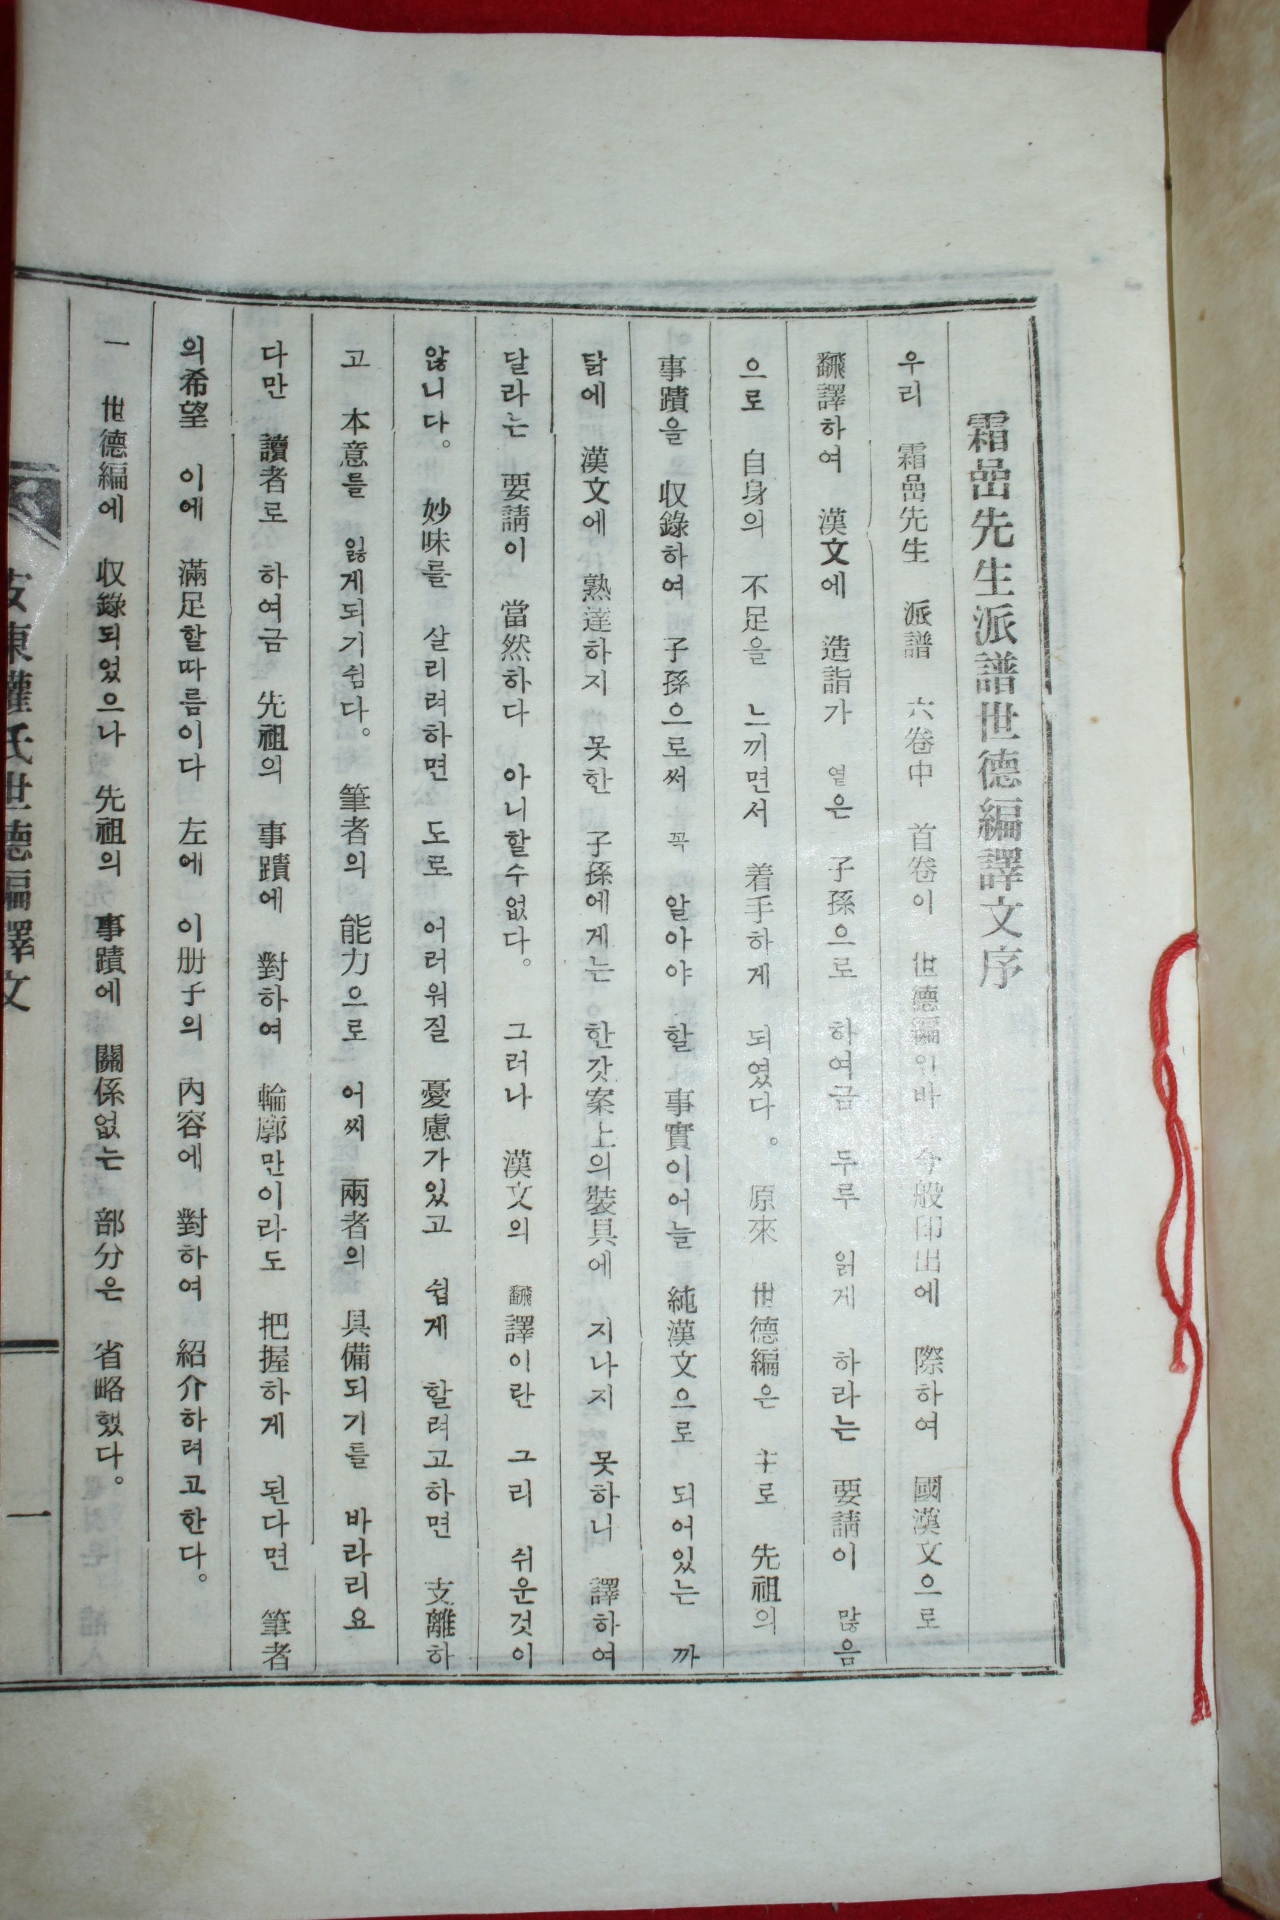 霜嵒先生派譜世德編譯文序
우리 霜嵒先生 派譜 六卷中 首卷이 世德編인바 今般印出에 際하여 國漢文으로
飜譯하여 漢文에 造詣가 옅은 子孫으로 하여금 두루 읽게 하라는 要請이 많음
으로 自身의 不足을 느끼면서 着手하게 되였다。 原來 世德編은 主로 先祖의
事蹟을 収錄하여 子孫으로써 꼭 알아야 할 事實이어늘 純漢文으로 되어있는 까
닭에 漢文에 熟達하지 못한 子孫에게는 한갓案上의裝具에 지나지 못하니 譯하여
달라는 要請이 當然하다 아니할수없다。 그러나 漢文의 飜譯이란 그리 쉬운것이
않니다。 妙味를 살리려하면 도로 어려워질 憂慮가있고 쉽게 할려고하면 支離하
고 本意를 잃게되기쉽다。 筆者의 能力으로 어찌 兩者의 具備되기를 바라리요
다만 讀者로 하여금 先祖의 事蹟에 對하여 輪廓만이라도 把握하게 된다면 筆者
의希望 이에 滿足할따름이다 左에 이册子의 內容에 對하여 紹介하려고한다。
一 世德編에 収錄되었으나 先祖의 事蹟에 關係없는 部分은 省略했다。
安東權氏世德編譯文 一